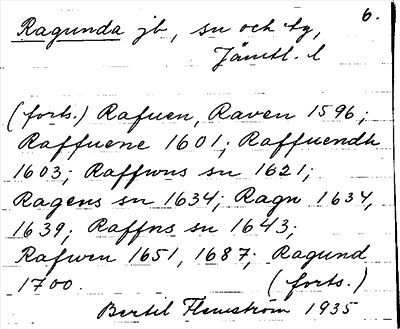 6.
Ragunda jb, sn och tg,
Jämtl. l
(forts.) Rafuen, Raven 1596;
Raffuene 1601; Raffuendh
1603; Raffwns sn 1621;
Ragens sn 1634; Ragn 1634,
1639; Raffns sn 1643;
Rafwen 1651, 1687; Ragund
1700. (forts.)
Bertil Flemström 1935